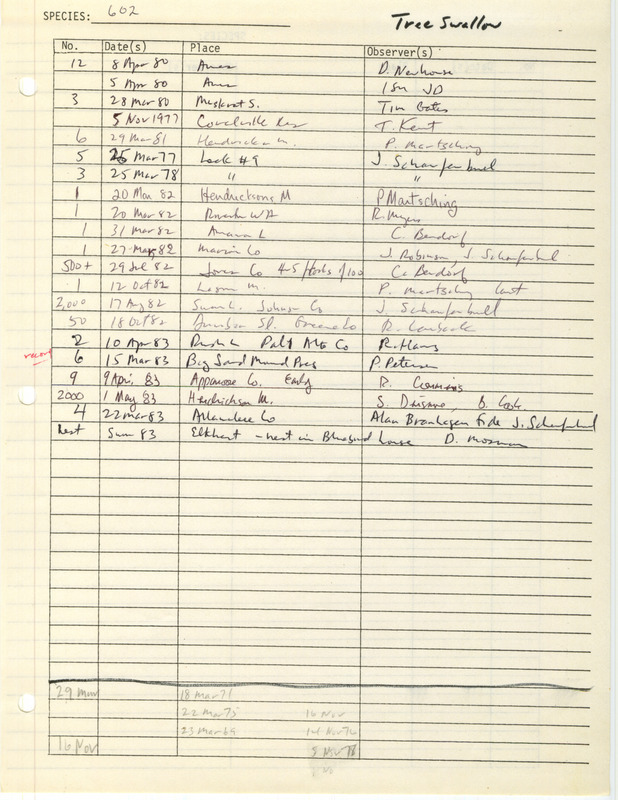 SPECIES: 602 Tree Swallow
No. Date(s) Place Observer(s)
12 8 Apr 80 Ames D. Newhouse
5 Apr 80 Ames JD
3 28 Mar 80 Muskrat S. Tim Gates
5 Nov 1977 Coralville Res T. Kent
6 29 Mar 81 Hendrickson M. P. Martsching
5 25 Mar 77 Lock #9 J. Schaufenbuel
3 25 Mar 78 " "
1 20 Mar 82 Hendricksons M P Martsching
1 20 Mar 82 WA R. Myers
1 31 Mar 82 L C. Bendorf
1 27 Mar 82 Marion Co J. Robinson, J. Schaufenbuel
500+ 29 Jul 82 Jones Co 4-5 flocks of 100 C. Bendorf
1 12 Oct 82 M. P. Martsching last
2,000 17 Aug 82 Swan L. Johnson Co J. Schaufenbuel
50 18 Oct 82 Dunbar Sl. Greene Co R.
2 10 Apr 83 Rush L Palo Alto Co R. Harms
record 6 15 Mar 83 Big Sand Mound Pres P. Petersen
9 9 Apri. 83 Appanoose Co. Early R. Cummins
2000 1 May 83 Hendrickson M. S. Dinsmore, B.
4 22 Mar 83 Allamakee Co Alan Branhagen fide J. Schaufenbuel
Nest Sum 83 Elkhart - nest in Bluebird house D. Mossman
29 Mar 18 Mar 71
22 Mar 75 16 Nov
23 Mar 69 14 Nov 76
16 Nov 5 Nov 77